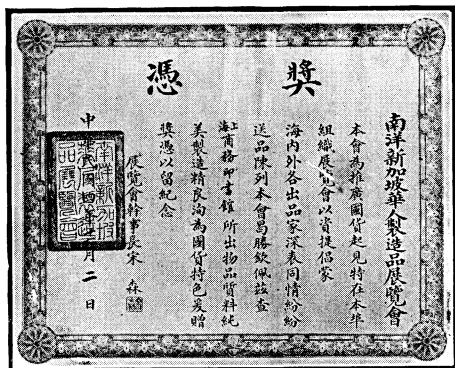 獎憑
南洋新加坡華人製造品展覽會
本會為推廣國貨起見特在本埠
組織展覽會以資提倡蒙
海內外各出品家深表同情紛紛
送品陳列本會曷勝欽佩茲查
上海商務印書館所出物品質料純
美製造精良洵為國貨特色爰贈
獎憑以留紀念
展覽會幹事長宋森
中 月二日